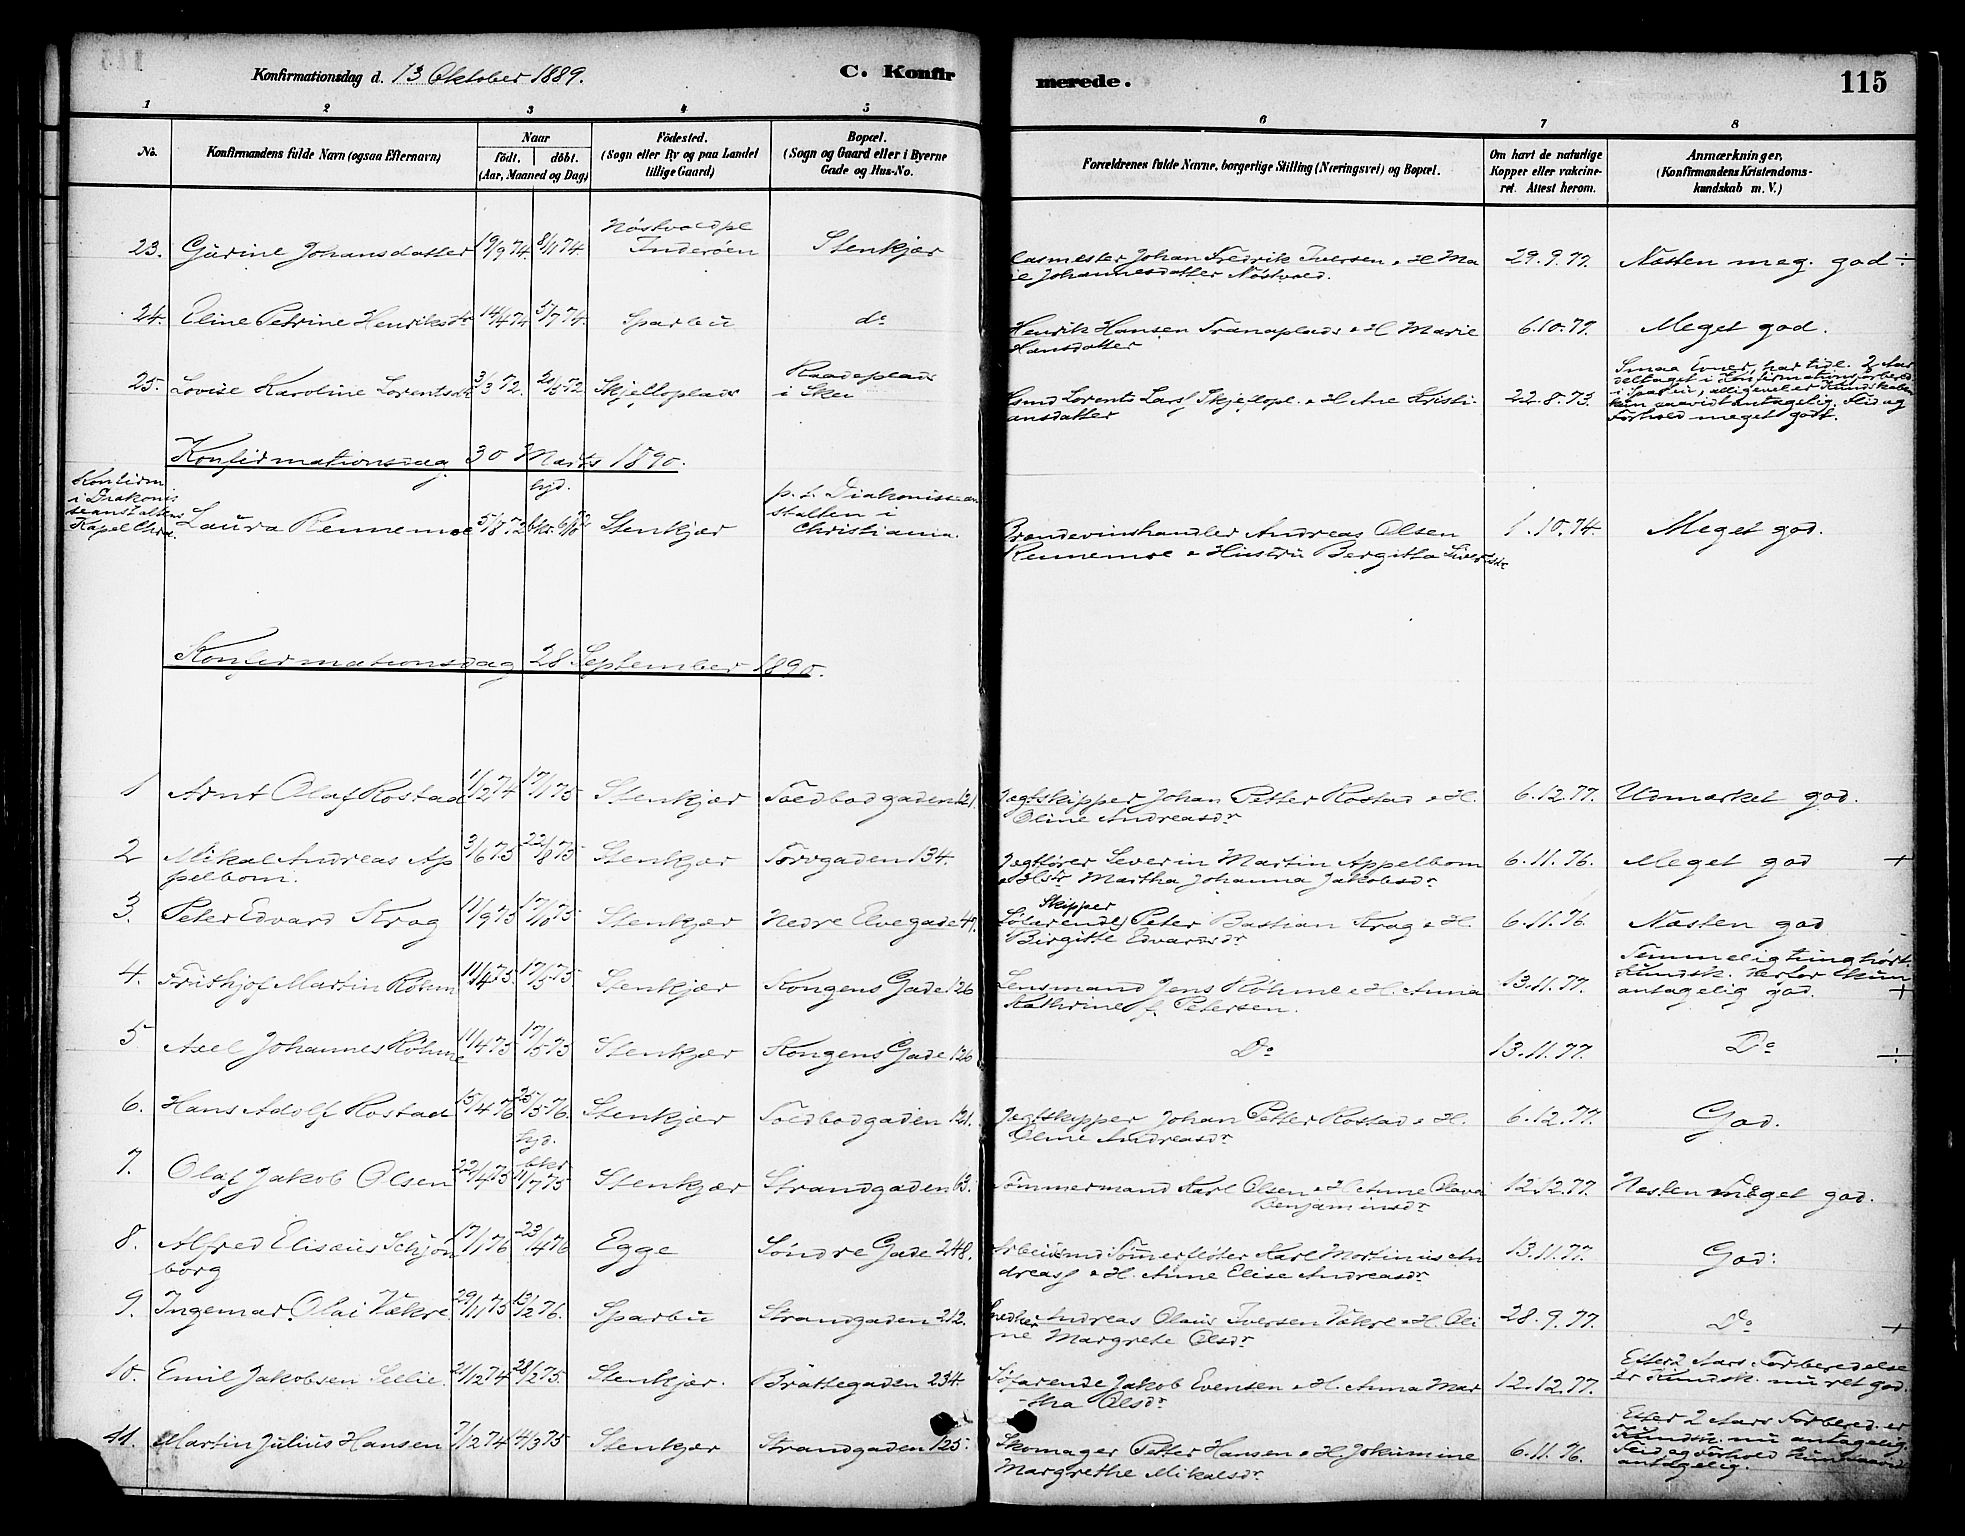 Konfirmationsdag d. 13 Oktober 1889. C. Konfir merede. 115
1 2 3 4 5 6 7 8
No. Konfirmandens fulde Navn (ogsaa Efternavn) Naar födt. döbt. (Aar, Maaned og Dag) Födested. (Sogn eller By og paa Landet tillige Gaard) Bopæl. (Sogn og Gaard eller i Byerne Gade og Hus-No. Forældrenes fulde Navne, borgerlige Stilling (Næringsvei) og Bopæl. Om havt de naturlige Kopper eller vakcineret. Attest herom. Anmærkninger, (Konfirmandens Kristendomskundskab m. V.)
23. Gurine Johansdatter 19/9 74 8/11 74. Nøstvoldpl Inderöen Stenkjær Johan Fredrik Iversen & H Ma 29.9.77. Næsten meg. god ÷
Johannesdatter Nøstvold.
24. Eline Petrine Henriksdr 14/4 74 5/7 74. Sparbu do Henrik Hansen Tranaplads & H Marie 6.10.77. Meget god.
Hansdatter
25. Lovise Karoline Lorentsdr 3/3 72. 20/5 72 Skjelloplads Raadeplads i Skei Lorents Lars. Skjellopl. & H. Ane Kristi 22.8.73. Smaa Evner, har tidl. 2 Aar
ansdatter deltaget i Konfirmationsforbered.
i Sparbu, alligevel er Kundskaben
kun saavidt antagelig. Flid og
Forhold meget godt.
Konfirmationsdag 30 Marts 1890.
Konfirm. i Diakonisseanstaltens Kapel Chra. Laura Rennemoe 5/8 72 hjd. bkr. 6/10 72 Stenkjær p. t. Diakonissean stalten i Christiania. Brændevinshandler Andreas Olsen 1.10.74. Meget god.
Rennemoe & Hustru Bergitta Sivertsdr
Konfirmationsdag 28 September 1890.
1 Arnt Olaf Rostad 1/12 74 17/1 75 Stenkjær Toldbodgaden 121. Jagtskipper Johan Petter Rostad & H. 6.12.77. Udmærket god.
Oline Andreasdr
2 Mikal Andreas Ap 3/6 75 22/8 75 Stenkjær Torvgaden 134. Jagtfører Severin Martin Appelbom 6.11.76. Meget god +
pelbom. & Hstr Martha Johanna Jakobsdr
3. Peter Edvard Krog 11/9 75 17/10 75 Stenkjær Nedre Elvegade 47. Skipper Peter Bastian Krog & H. 6.11.76. Næsten god -
Birgitte Edvardsdr
4. Frithjof Martin Röhme 11/4 75. 17/5 75 Stenkjær Kongens Gade 126 Lensmand Jens Röhme & H. Anna 13.11.77. Temmelig tunghørt.
Kathrine f. Petersen. Kundsk. derfor kun
antagelig god. +
5 Axel Johannes Röhme 11/4 75 17/5 75 Stenkjær Kongens Gade 126 Do 13.11.77. Do ÷
6. Hans Adolf Rostad 15/4 76 25/5 76. Stenkjær Toldbodgaden 121. Jagtskipper Johan Petter Rostad & H. 6.12.77. God.
Oline Andreasdr
7. Olaf Jakob Olsen 22/4 75 hjd. bkr 11/7 75 Stenkjær Strandgaden 63. Tömmermand Karl Olsen & H. Anne Olava 12.12.77. Nesten meget god.
Benjaminsdr
8. Alfred Elisæus Schjön 17/1 76 23/4 76 Egge Söndre Gade 248. Arbeidsmd Tömmerfløter Karl Martinus An 13.11.77. God.
borg dreas. & H. Anne Elise Andreasdr
9. Ingemar Olai Vækre 29/11 75 13/2 76. Sparbu Strandgaden 212. Snedker Andreas Olaus Iversen Vækre & H. Oli 28.9.77. Do +
ne Margrete Olsdr
10. Emil Jakobsen Sellie. 21/12 74 28/2 75. Stenkjær. Brattegaden 234. Söfarende Jakob Evensen & H. Anna Mar 12.12.77. Efter 2 Aars Forberedelse
tha Olsdr er Kundsk. nu ret god.
11. Martin Julius Hansen 7/12 74 4/3 75 Stenkjær Strandgaden 125. Skomager Petter Hansen & H. Jokumine 6.11.76. Efter 2 Aars Forbered. er
Margrethe Mikalsdr Kundsk. nu antagelig.
Flid og Forhold kun saavidt
antagelig.